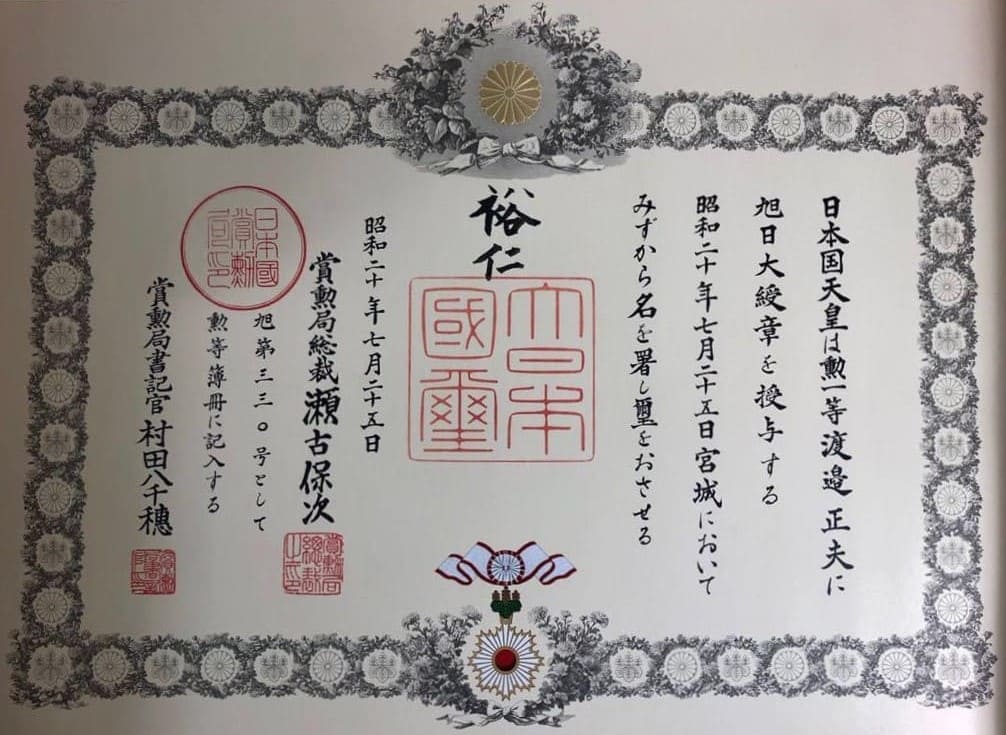 日本国天皇は勲一等渡邉正夫に
旭日大綬章を授与する
昭和二十年七月二十五日宮城において
みずから名を署し璽をおさせる
裕仁
大日本國璽
昭和二十年七月二十五日
賞勲局総裁瀬古保次
賞勲局総裁之印
日本國賞勲局印
旭第三三〇号として
勲等簿冊に記入する
賞勲局書記官村田八千穂